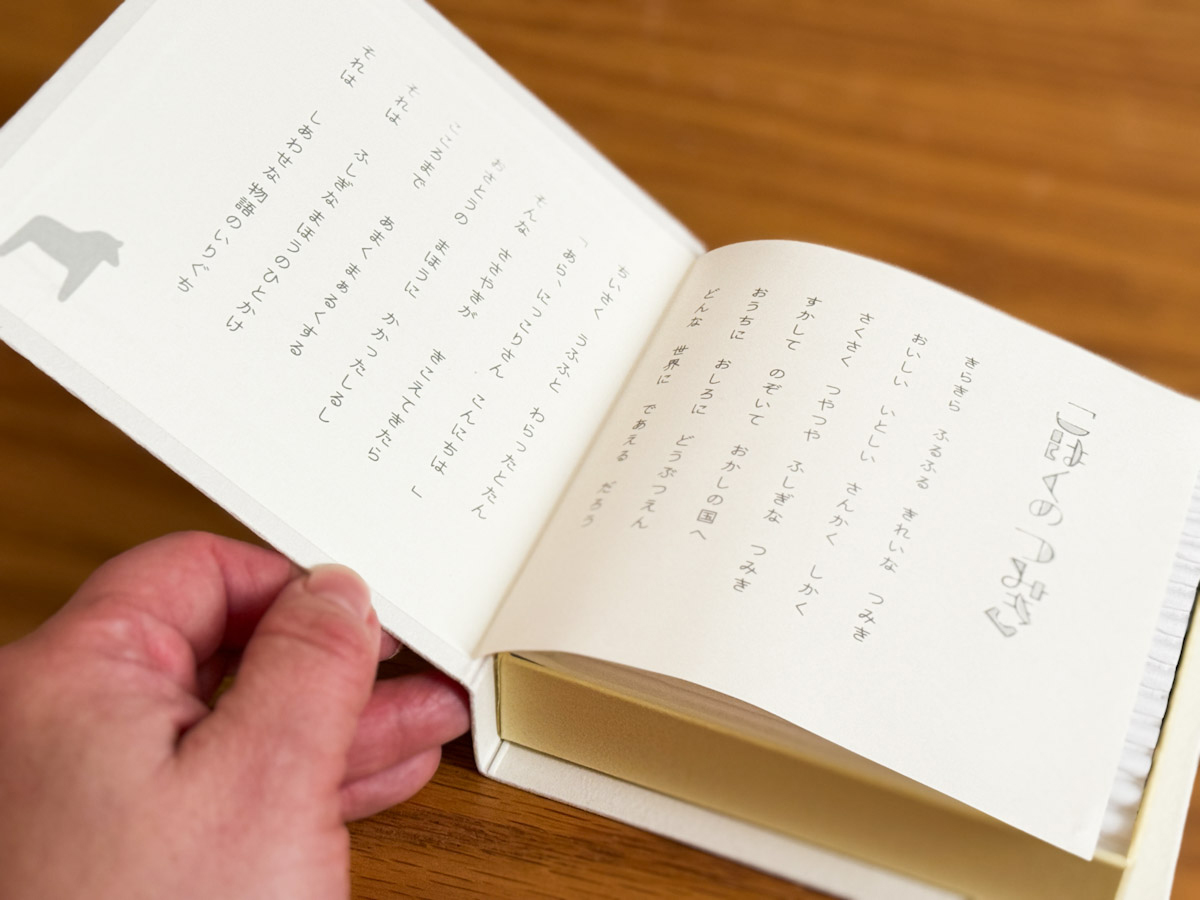 「こはくのつみき」
きらきら ふるふる きれいな つみき
おいしい いとしい さんかく しかく
さくさく つやつや ふしぎな つみき
すかして のぞいて おかしの国へ
おうちに おしろに どうぶつえん
どんな 世界に であえる だろう
ちいさく うふふと わらったとたん
「あら、にっこりさん こんにちは」
そんな ささやきが きこえてきたら
おさとうの まほうに かかったしるし
こころまで あまく まぁるくする
それは ふしぎなまほうのひとかけ
それは しあわせな物語のいりぐち